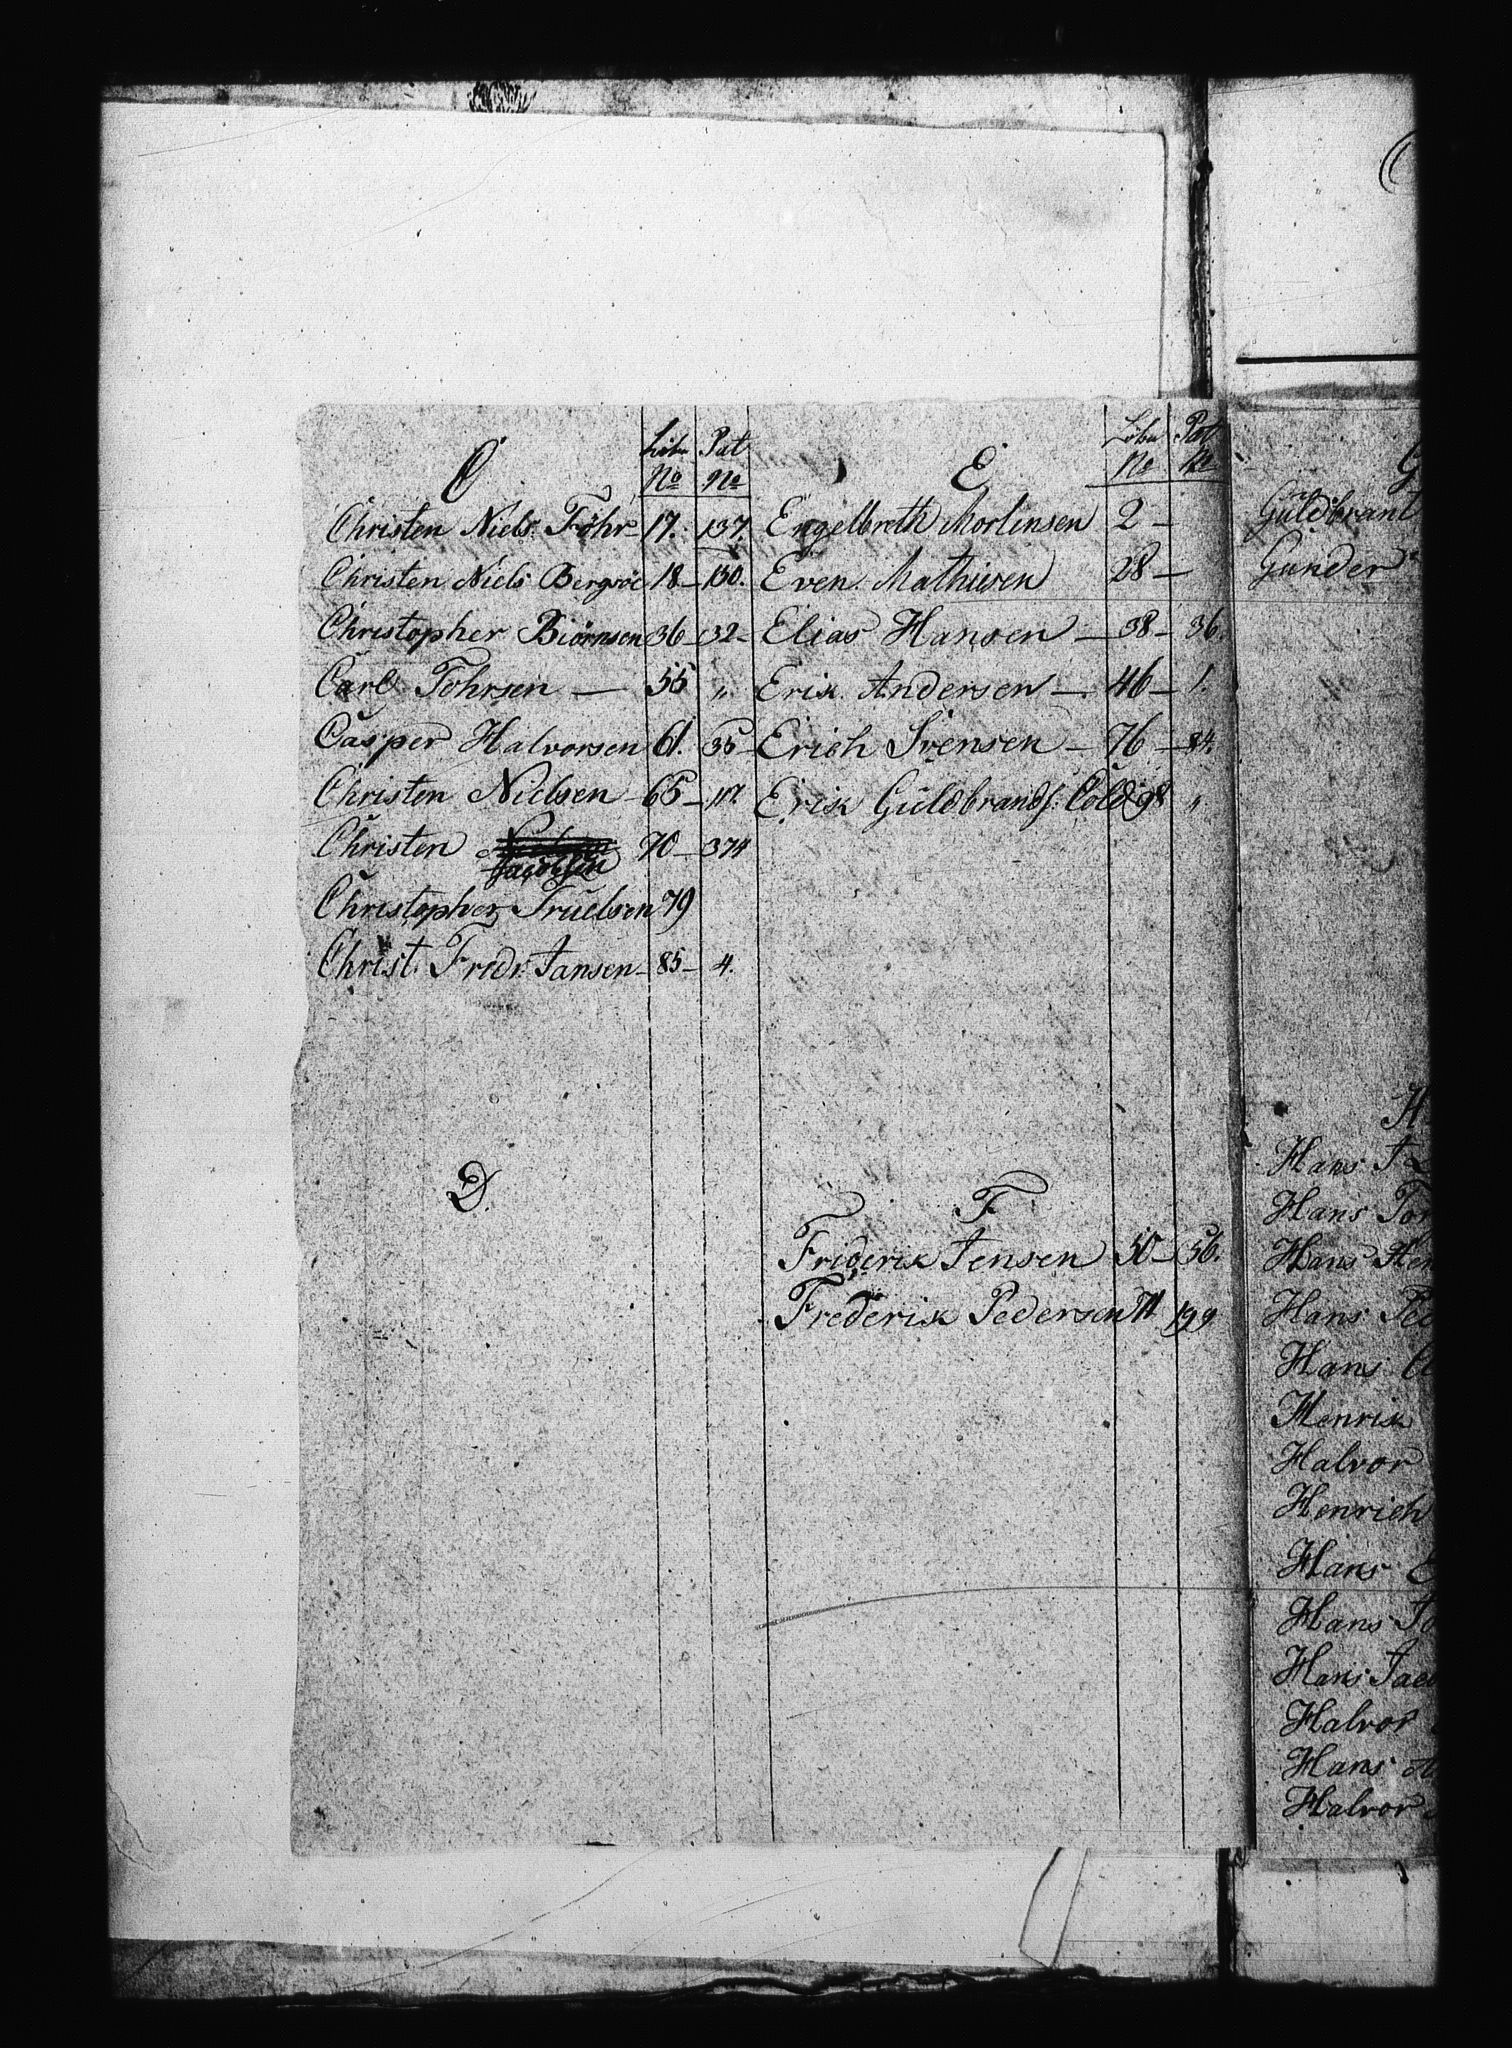 C Löbe No Pat No
Christen Niels. Föhr 17. 137.
Christen Niels Bergsöe 18 — 130.
Christopher Biörnsen 36 — 132 —
Carl Tohrsen — 55 „
Casper Halvorsen 61. 35 —
Christen Nielsen — 65 — 117.
Christen Nielsen 70 — 374
Jacobsen
Christopher Truelsen 79
Christ. Fredr. Jansen — 85 — 4.
D.
E Löbe No Pat No
Engelbreth Mortensen 2 —
Even Mathiesen 28 —
Elias Hansen — 38 — 36.
Erik Andersen — 46 — 1.
Erich Svensen — 76 — 84.
Erik Guldbrands. Cold 98 „
F
Friderik Jensen 50 — 56.
Frederik Pedersen 71 199
G
Guldbrant
Gunder
H
Hans
Hans Tor
Hans Hen
Hans Ped
Hans
Henrik
Halvor
Henrich
Hans
Hans Jo
Hans Jac
Halvor
Hans
Halvor